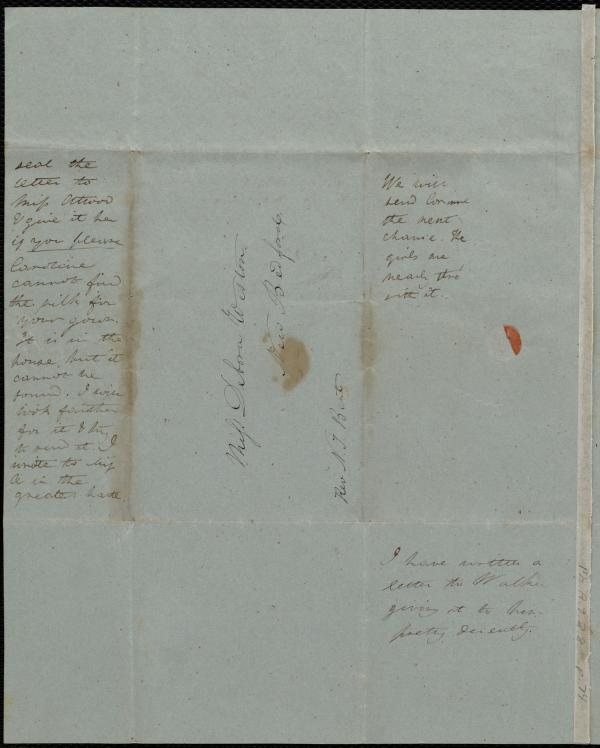 seal the
letter to
Miss Attwood
& give it her
if you please
Caroline
cannot find
the silk for
your gown.
It is in the
house, but it
cannot be
found. I will
look further
for it & try
to send it. I
wrote to Miss
A in the
greatest haste.
Miss Debora Weston.
New Bedford.
Rev. N. T. Bent
We will
send
the next
chance. The
girls are
nearly thro'
with it.
I have written a
letter to Walker
giving it to him
pretty decently.